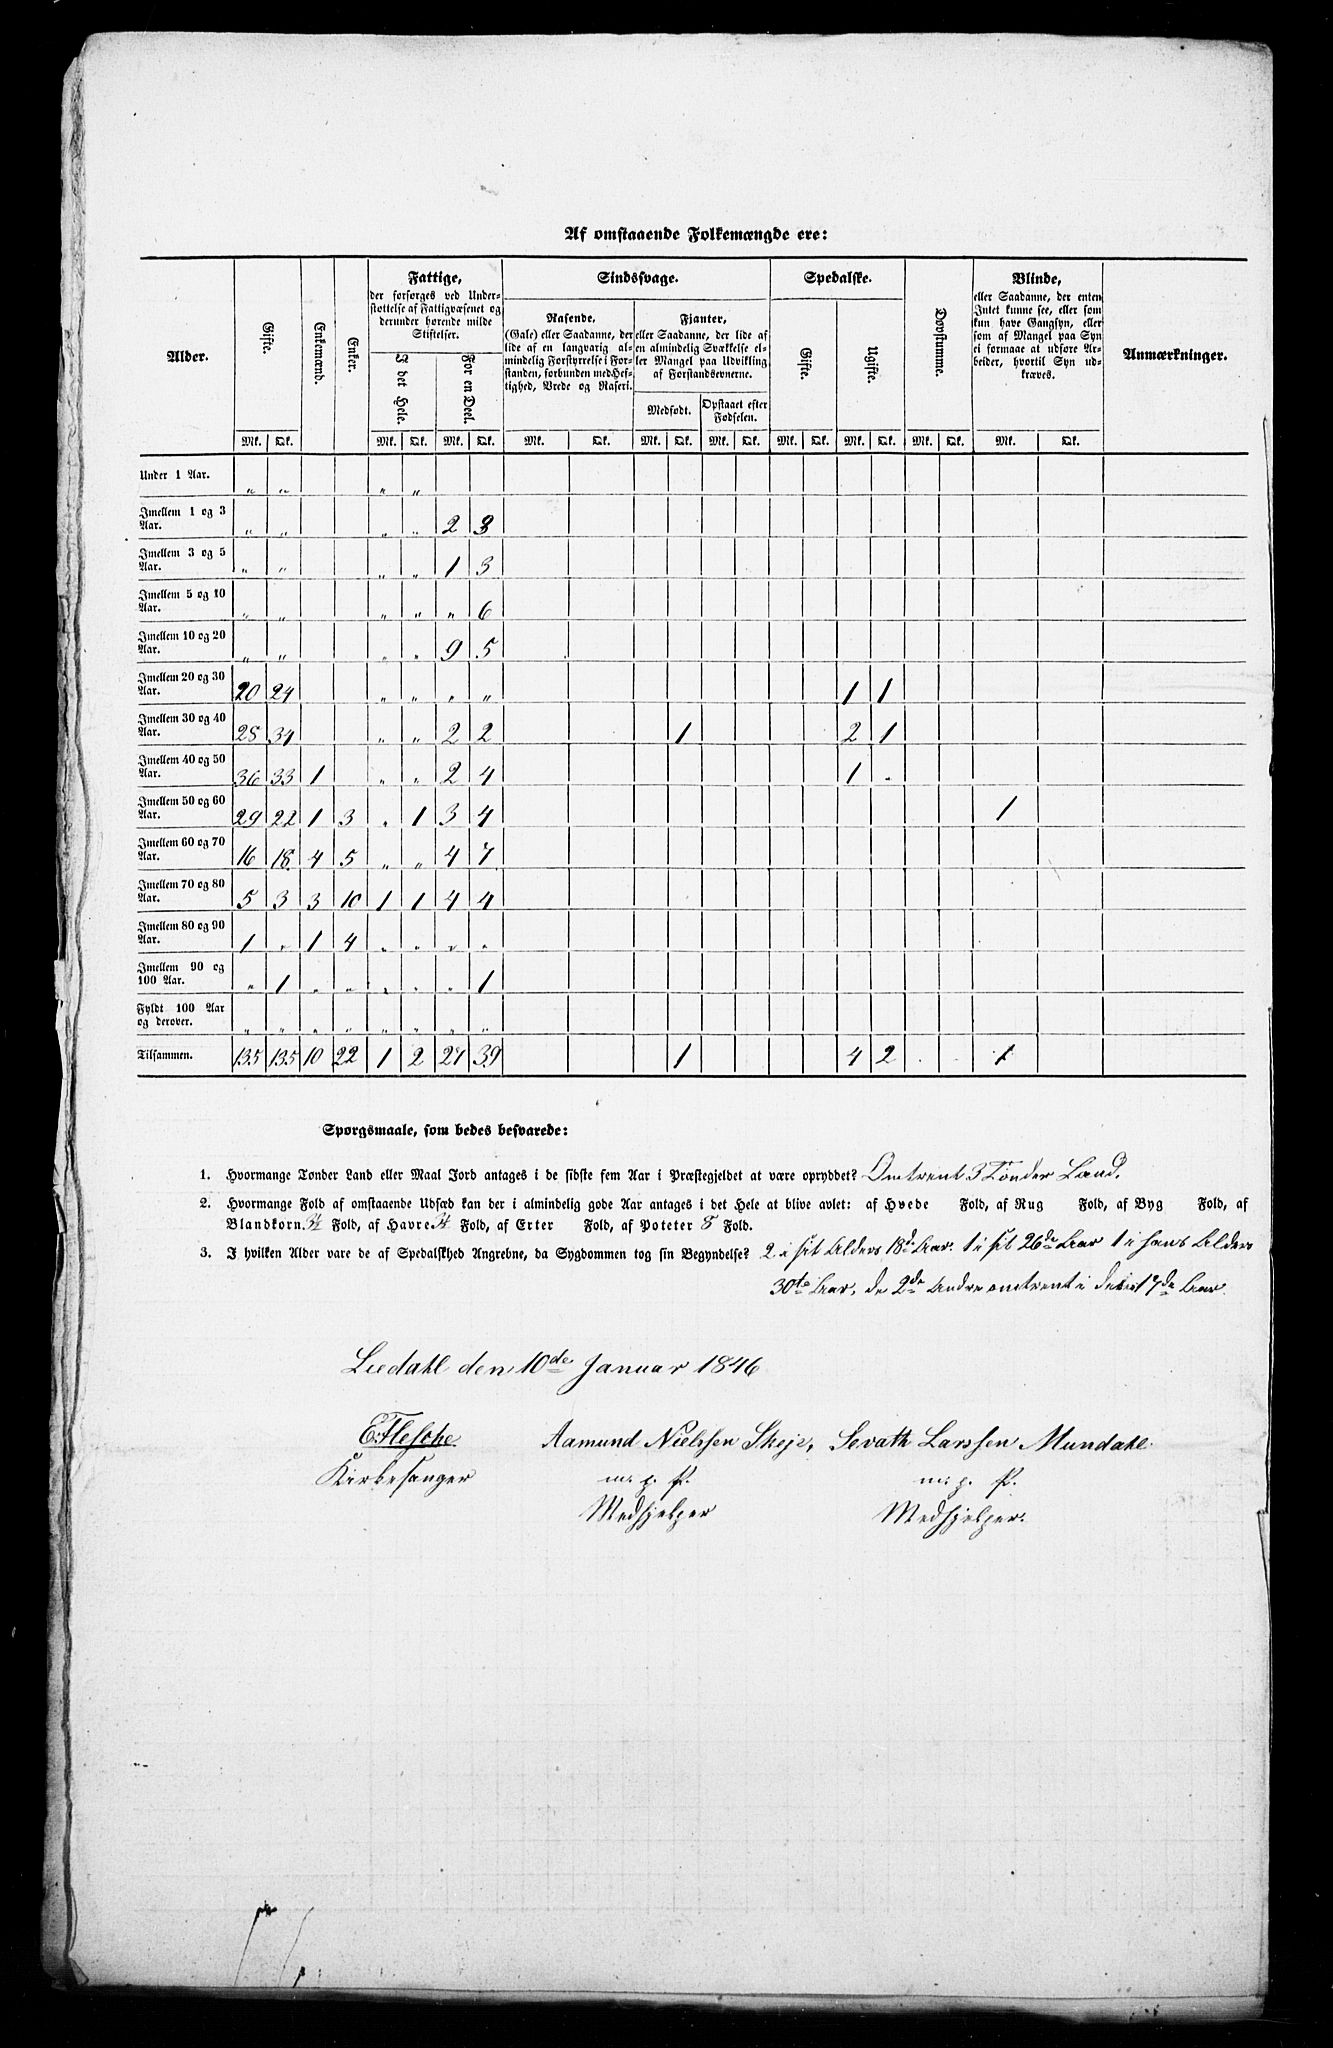 Af omstaaende Folkemængde ere:
Alder. Gifte. Enkemænd. Enker. Fattige, der forsørges ved Understøttelse af Fattigvæsenet og derunder hørende milde Stiftelser. Sindssvage. Spedalske. Døvstumme. Blinde, eller Saadanne, der enten Intet kunne see, eller som kun have Gangsyn, eller som af Mangel paa Syn ei formaae at udføre Arbeider, hvortil Syn udkræves. Anmærkninger.
I det Hele. For en Deel. Rasende. (Gale) eller Saadanne, der lide af en langvarig almindelig Forstyrrelse i Forstanden, forbunden med Heftighed, Vrede og Raseri. Fjanter, eller Saadanne, der lide af en almindelig Svækkelse eller Mangel paa Udvikling af Forstandsevnerne. Gifte. Ugifte.
Medfødt. Opstaaet efter Fødselen.
Mk. Qk. Mk. Qk. Mk. Qk. Mk. Qk. Mk. Qk. Mk. Qk. Mk. Qk. Mk. Qk. Mk. Qk. Mk. Qk.
Under 1 Aar. " " " "
Imellem 1 og 3 Aar. " " " " 2 3
Imellem 3 og 5 Aar. " " " " 1 3
Imellem 5 og 10 Aar. " " " " " 6
Imellem 10 og 20 Aar. " " " " 9 5
Imellem 20 og 30 Aar. 20 24 " " " " 1 1
Imellem 30 og 40 Aar. 28 34 " " 2 2 1 2 1
Imellem 40 og 50 Aar. 36 33 1 " " 2 4 1 "
Imellem 50 og 60 Aar. 29 22 1 3 " 1 3 4 1
Imellem 60 og 70 Aar. 16 18 4 5 " " 4 7
Imellem 70 og 80 Aar. 5 3 3 10 1 1 4 4
Imellem 80 og 90 Aar. 1 " 1 4 " " " "
Imellem 90 og 100 Aar. " 1 " " " " " 1
Fyldt 100 Aar og derover. " " " " " " " "
Tilsammen. 135 135 10 22 1 2 27 39 1 4 2 . . 1
Spørgsmaale, som bedes besvarede:
1. Hvormange Tønder Land eller Maal Jord antages i de sidste fem Aar i Præstegjeldet at være opryddet? Omtrent 3 Tønder Land.
2. Hvormange Fold af omstaaende Udsæd kan der i almindelig gode Aar antages i det Hele at blive avlet: af Hvede Fold, af Rug Fold, af Byg Fold, af
Blandkorn Fold, af Havre Fold, af Erter Fold, af Poteter 8 Fold.
3. I hvilken Alder vare de af Spedalskhed Angrebne, da Sygdommen tog sin Begyndelse? 2 i sit Alders 18de Aar. 1 i sit 26de Aar 1 i hans Alders
30te Aar, de 2de Andre omtrent i deres 17de Aar.
Leedahl den 10de Januar 1846
E. Flesche. Aamund Nielssen Skeje, Sevath Larssen Mundahl.
Kirkesanger m. p. P. m. p. P.
Medhjelper Medhjelper.